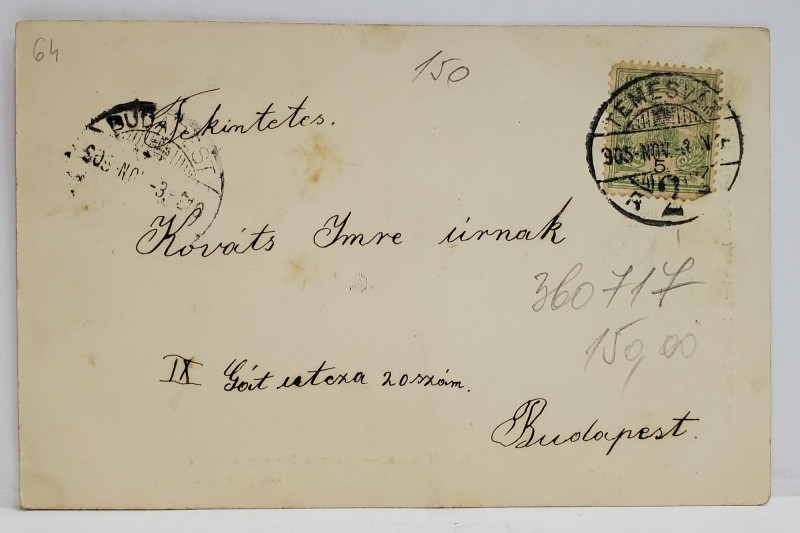 64
150
TEMESVÁR
905 NOV. -3
5
2
BUDAPEST
905 NOV -3
Tekintetes.
Kováts Imre úrnak
360717
150,00
IX Gát utcza 20 szám.
Budapest.